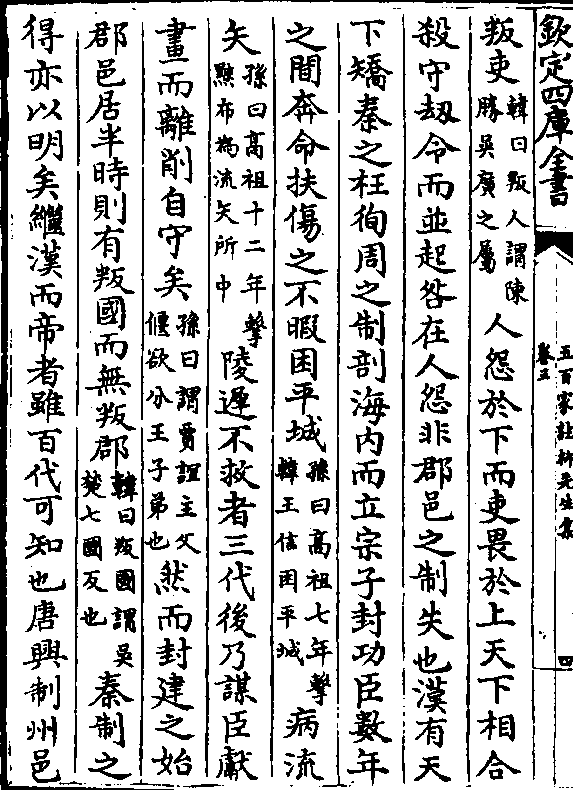 欽定四庫全書
五百家註柳先生集
卷五
四
叛吏韓曰叛人謂陳勝吳廣之屬人怨於下而吏畏於上天下相合
殺守刼令而並起咎在人怨非郡邑之制失也漢有天
下矯秦之枉徇周之制剖海内而立宗子封功臣數年
之間奔命扶傷之不暇困平城孫曰高祖七年擊韓王信困平城病流
矢孫曰高祖十二年擊黥布為流矢所中陵遲不救者三代後乃謀臣獻
畫而離削自守矣孫曰謂賈誼主父偃欲分王子弟也然而封建之始
郡邑居半時則有叛國而無叛郡韓曰叛國謂吳楚七國反也秦制之
得亦以明矣繼漢而帝者雖百代可知也唐興制州邑